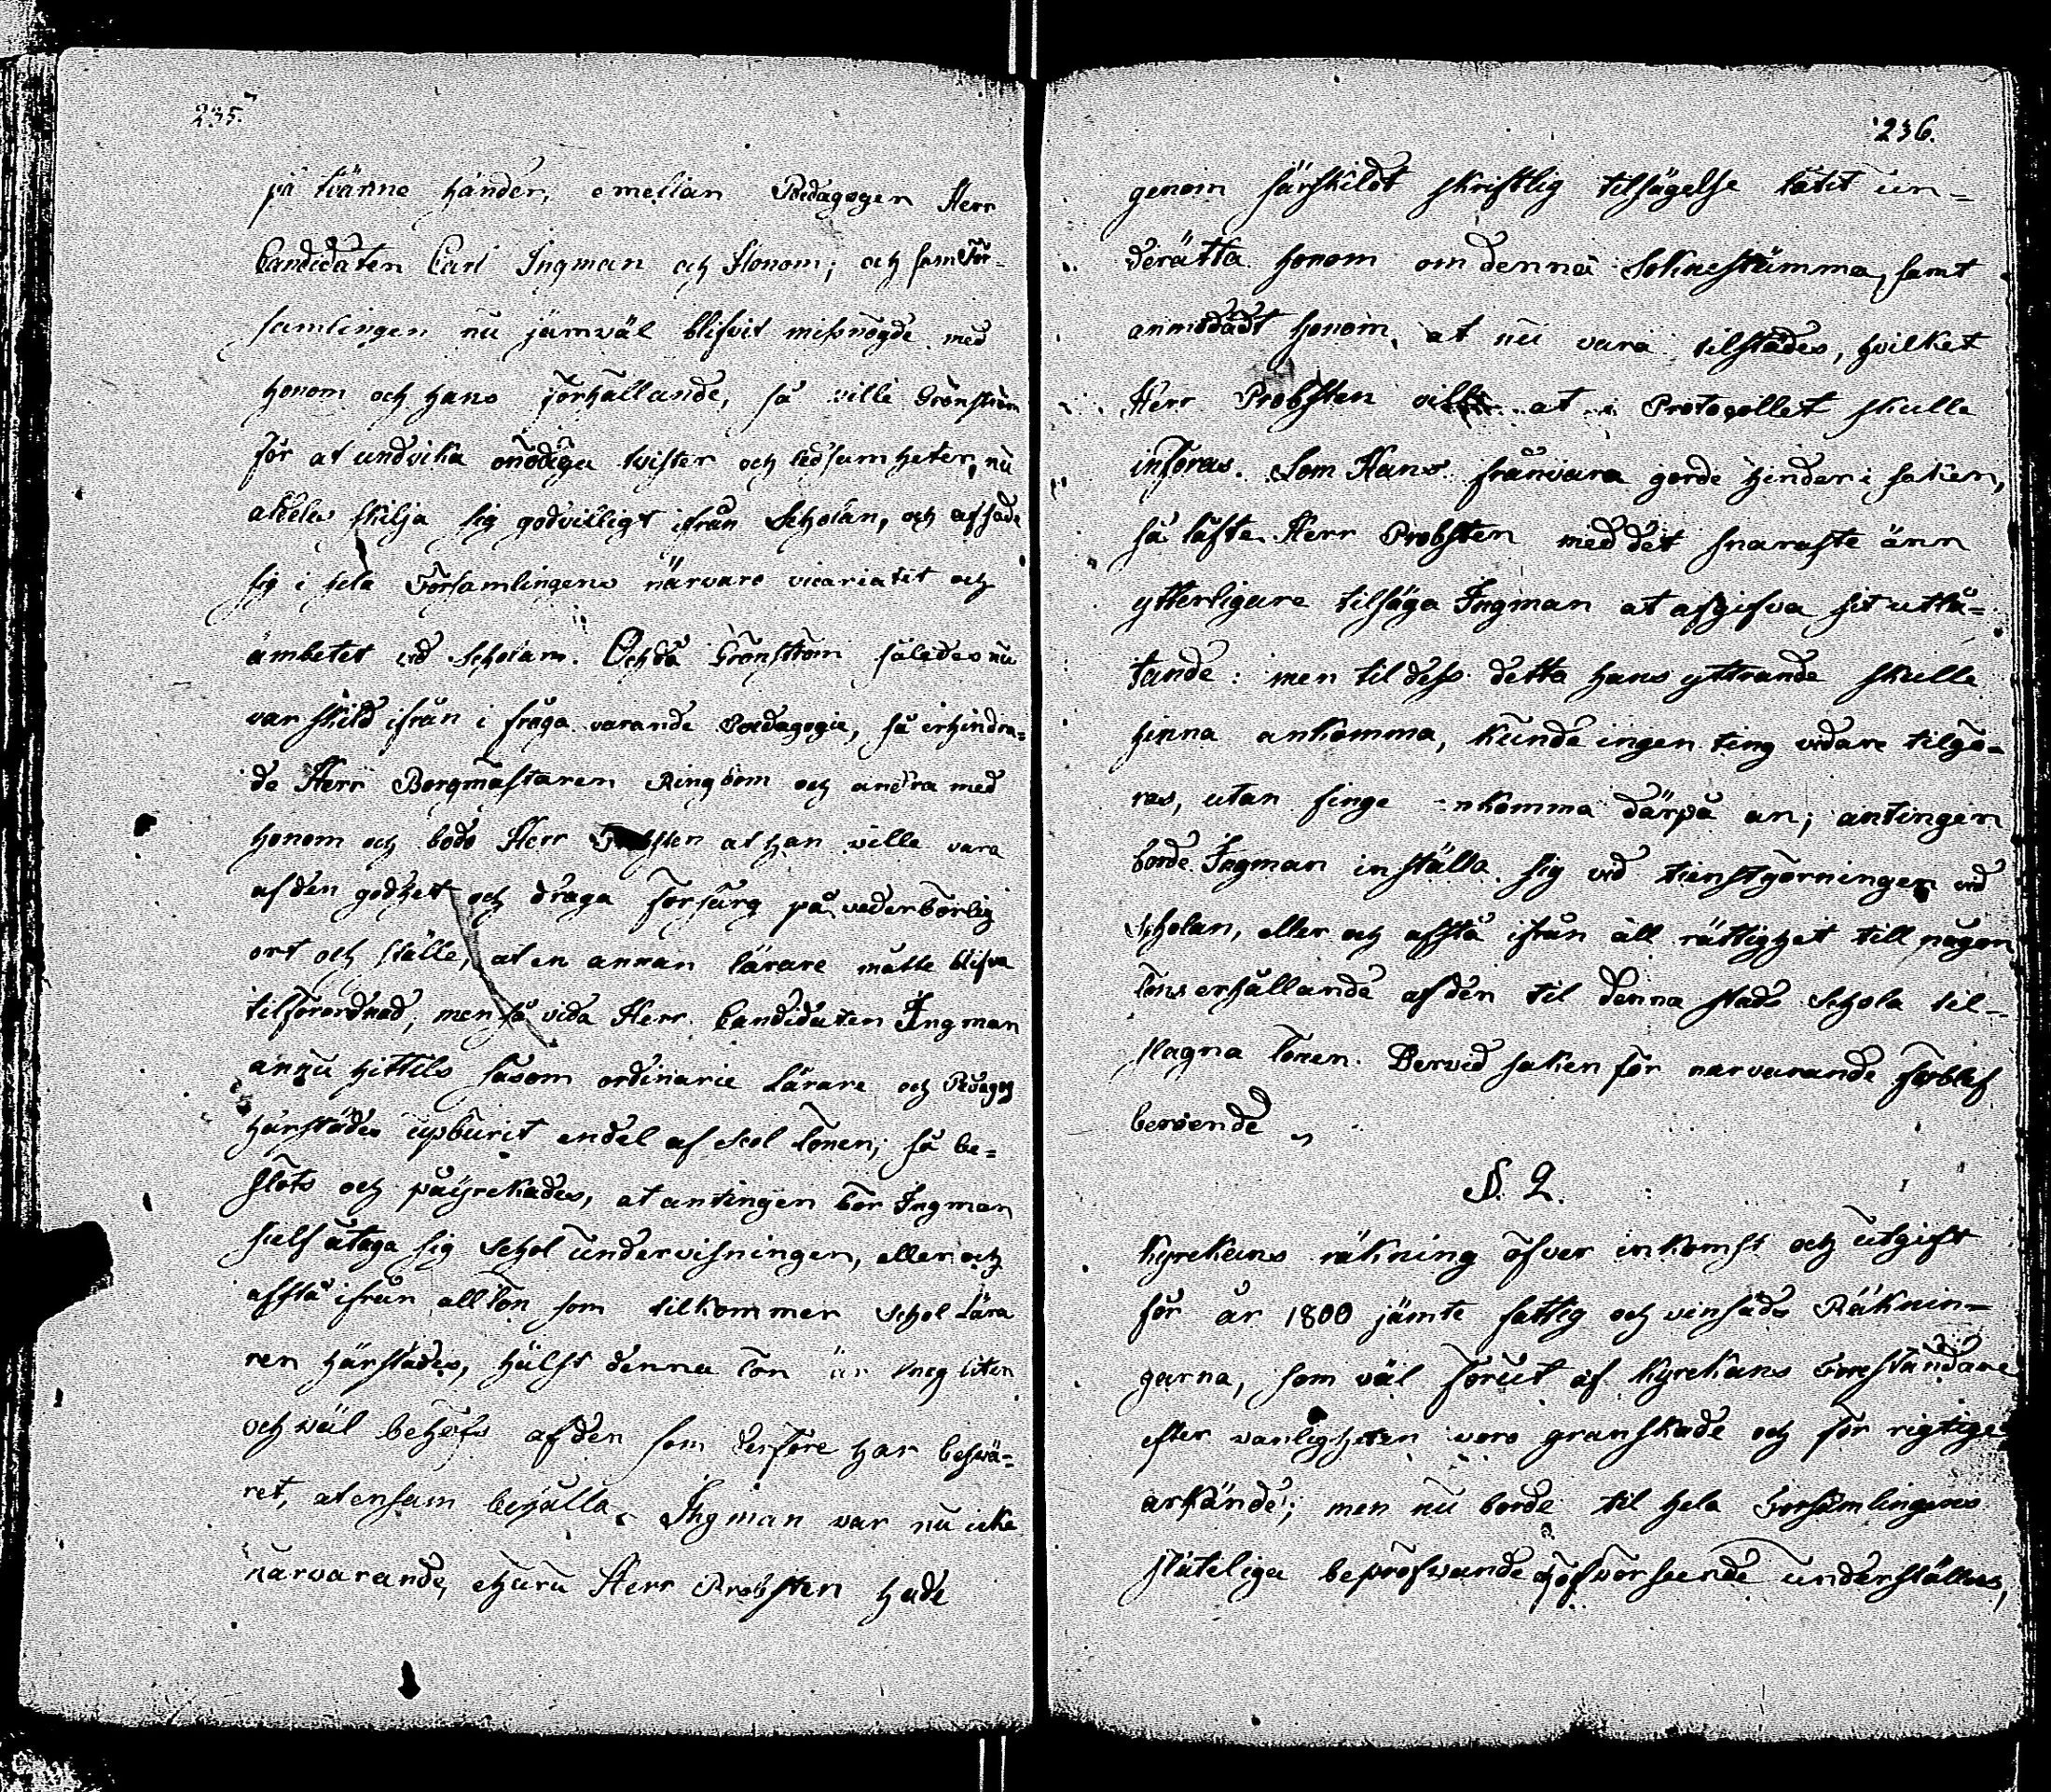 235.
på tvänne händer, emellan Pædagogen Herr
Candidaten Carl Ingman och Honom; och som För-
samlingen nu jämväl blifvit missnögde med
honom och hans förhållande, så ville Grönström
för at undvika onödiga tvister och ledsamheter, nu
aldeles skilja sig godvilligt ifrån Scholan, och afsade
sig i hela Församlingens närvaro vicariatet och
ämbetet vid Scholan. Och då Grönström således nu
var skild ifrån i fråga varande Pædagogie, så erhindra-
de Herr Borgmästaren Ringbom och andra med
honom och bådo Herr Probsten at han ville vara
af den godhet och draga försårg på vederbörlig
ort och ställe, at en annan lärare måtte blifva
tilförordnad; men så vida Herr Candidaten Ingman
ännu hittils såsom ordinarie Lärare och Pædagog
härstädes upburit en del af Skol lönen; så be-
slöts och påyrckades, at antingen bör Ingman
sielf åtaga sig Schol undervisningen, eller och
afstå ifrån all lön som tilkommer Schol Lära
ren härstädes, hälst denna lön är nog liten
och wäl behöfs af den som derföre har beswä-
ret, at ensam behålla. Ingman var nu icke
närvarande, ehuru Herr Probsten hade
236.
genom särskildt skriftlig tilsägelse låtit un-
derätta honom om denna Soknestämma, samt
anmodadt honom, at nu vara tilstädes, hvilket
Herr Probsten ville at i Protogollet skulle
införas. Som Hans frånvara gorde hinder i saken,
så låfte Herr Probsten med det snaraste änn
ytterligare tilsäga Ingman at afgifva sit utlå-
tande: men til dess detta hans yttrande skulle
hinna ankomma, kunde ingen ting vidare tilgö-
ras, utan finge ankomma därpå an; antingen
borde Ingman inställa sig vid tienstgörningen vid
Scholan, eller och afstå ifrån all rättighet till någon
löns erhållande af den til denna stads Schola til-
slagna lönen. Dervid saken för närvarande förblef
beroende
§. 2.
Kyrckans räkning öfver inkomst och utgift
för år 1800 jämte fattig och vinsäds Räknin-
garna, som väl förut af Kyrckans Föreståndare
efter vanligheten voro granskade och för rigtige
ärkände; men nu borde til hela Församlingens
sluteliga bepröfwande och öfverseende underställas,